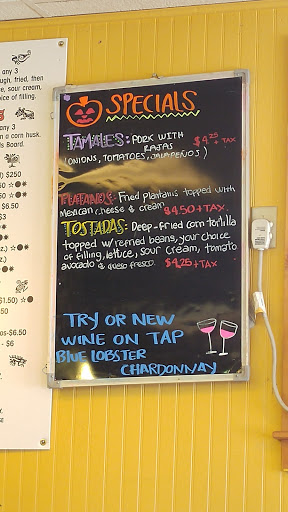 any 3
ough, fried, then
e, sour cream,
oice of filling.
any 3
n a corn husk.
ls Board.
) $250
$6.50
$1.50)
os-$6.50
- $6
SPECIALS
TAMALES: PORK WITH
RAJAS $4.25 + TAX
(ONIONS, TOMATOES, JALAPEÑOS)
PLATANOS: Fried plantains topped with
Mexican cheese & cream $4.50 + TAX.
TOSTADAS: Deep-fried corn tortilla
topped w/ refried beans, your choice
of filling, lettuce, sour cream, tomato
avocado & queso fresco. $4.25 + TAX
TRY OR NEW
WINE ON TAP
BLUE LOBSTER
CHARDONNAY